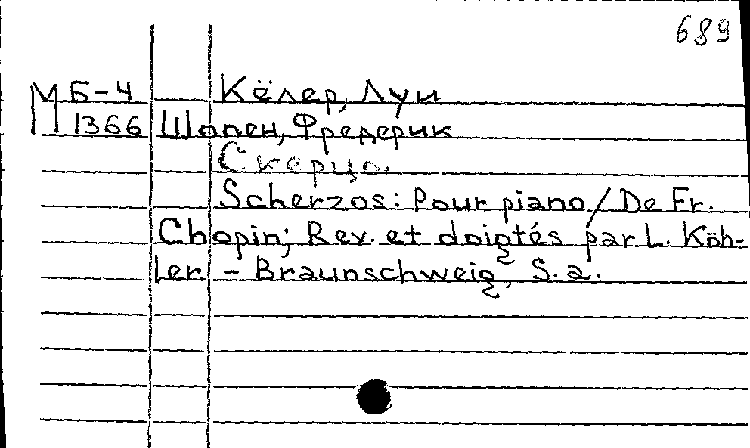 689
М Б-4 Кёлер, Луи
1366 Шопен, Фредерик
Скерцо.
Scherzos: Pour piano / De Fr.
Chopin; Rev. et doigtés par L. Köh-
ler. - Braunschweig, S. a.